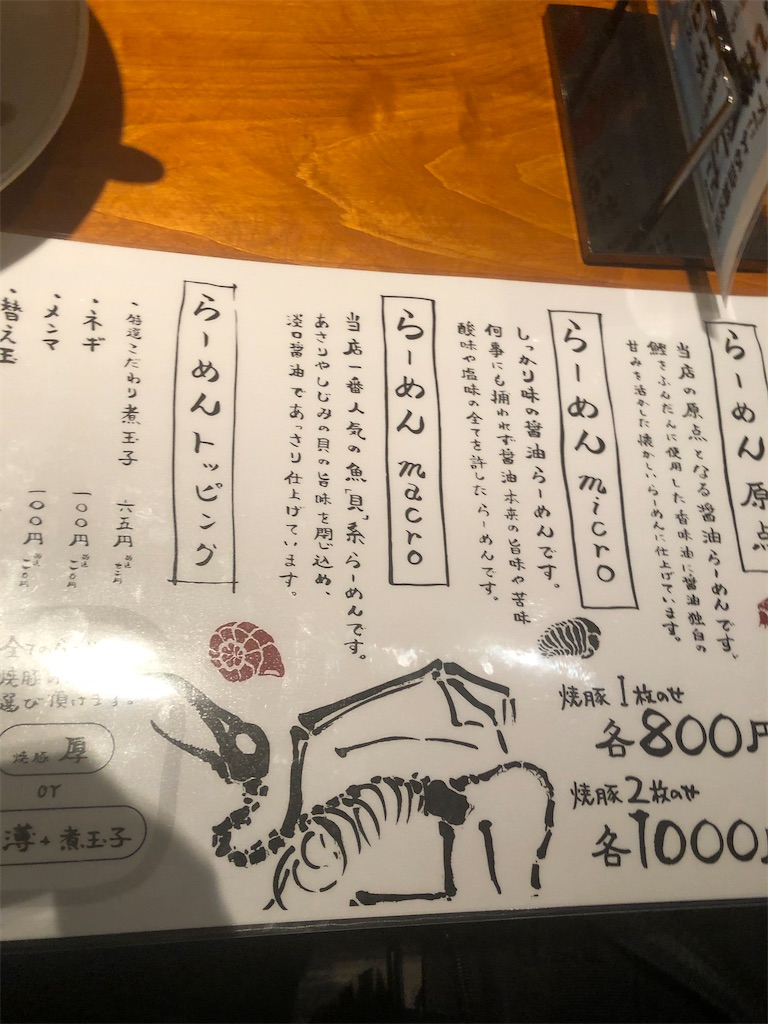 らーめん 原点
当店の原点となる醤油らーめんです、
鰹をふんだんに使用した香味油に醤油独自の
甘みを活かした懐かしいらーめんに仕上げています。
らーめん micro
しっかり味の醤油らーめんです。
何事にも捕われず醤油本来の旨味や苦味
酸味や塩味の全てを許したらーめんです。
らーめん macro
当店一番人気の魚「貝」系らーめんです。
あさりやしじみの貝の旨味を閉じ込め、
淡口醤油であっさり仕上げています。
らーめんトッピング
・特選こだわり煮玉子 六五円
・ネギ 一〇〇円
・メンマ 一〇〇円
・替え玉
焼豚1枚のせ
各800円
焼豚2枚のせ
各1000
全ての
焼豚
選び頂けます。
焼豚 厚
or
薄+煮玉子